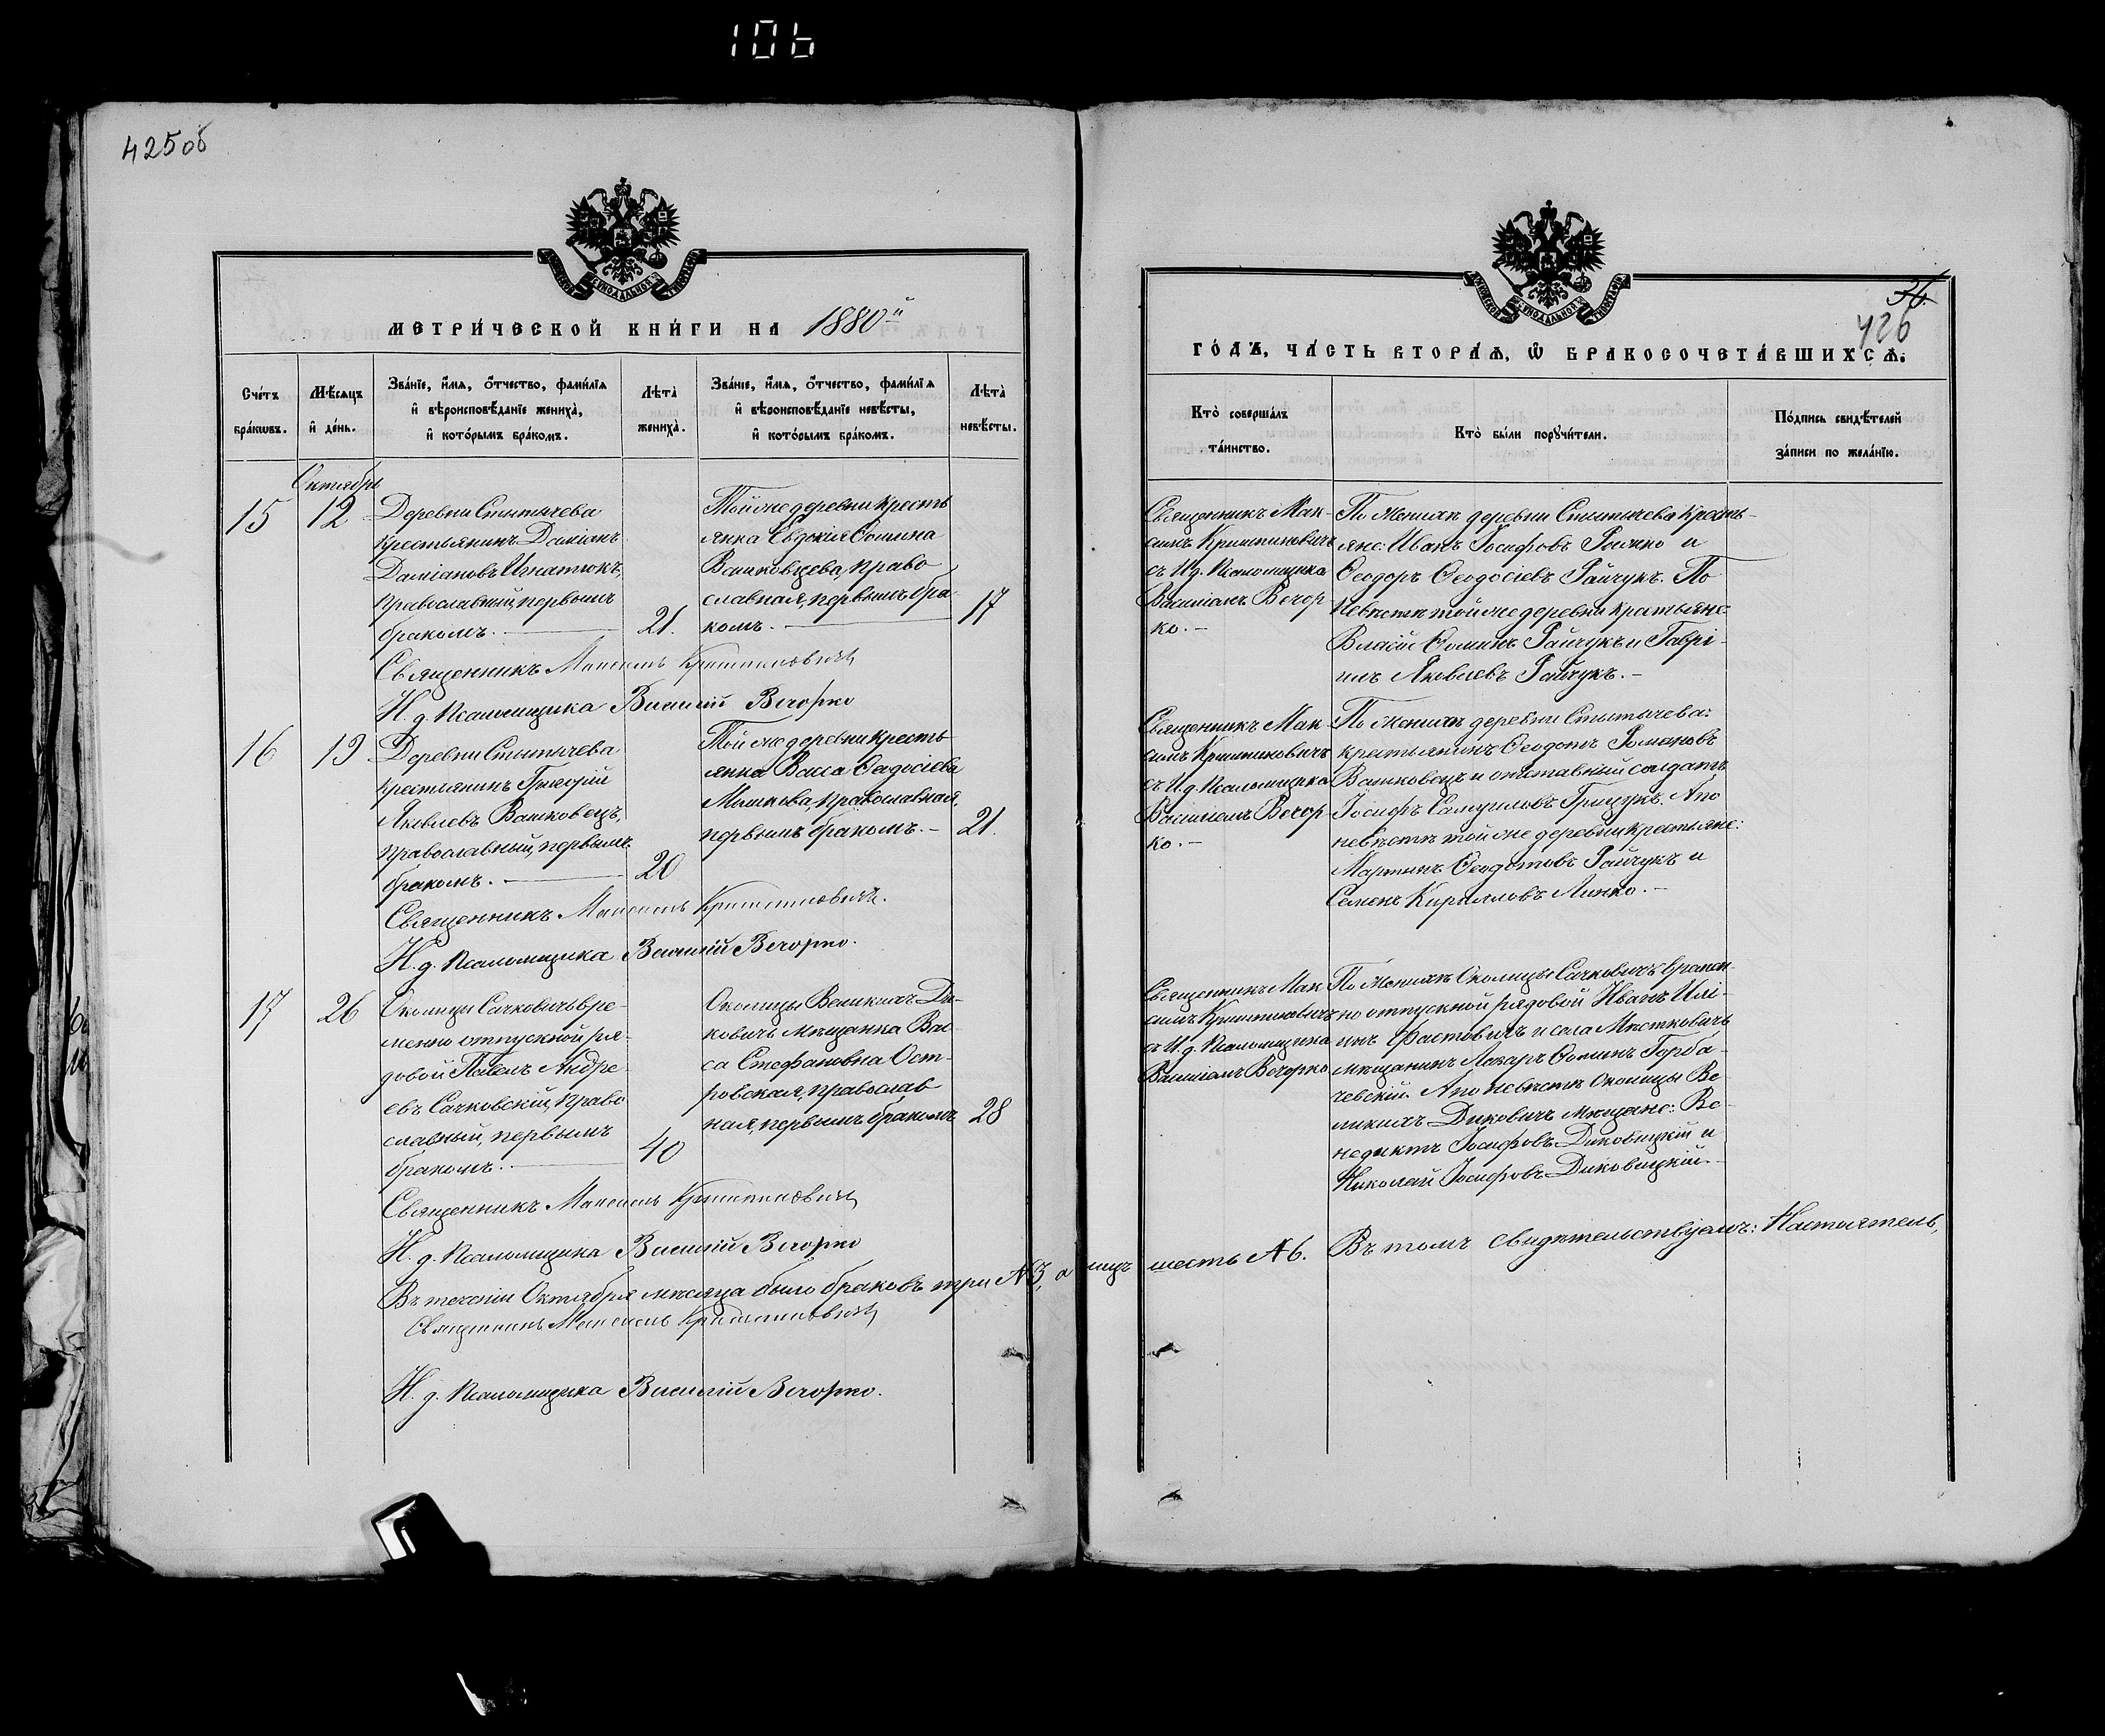 106
425об
МЕТРИЧЕСКОЙ КНИГИ НА 1880й
Счетъ браковъ.
Мѣсяцъ и день.
Званіе, имя, отчество, фамилія и вѣроисповѣданіе жениха, и которымъ бракомъ.
Лѣта жениха.
Званіе, имя, отчество, фамилія и вѣроисповѣданіе невѣсты, и которымъ бракомъ.
Лѣта невѣсты.
Октябрь
15
12
Деревни Стытычева
крестьянинъ Даміанъ
Даміановъ Игнатюкъ,
православный, первымъ
бракомъ.
21.
Той же деревни кресть
янка Евдокія Ѳомина
Вашковцева, право
славная, первымъ бра
комъ.
17
Священникъ Максимъ Криштиновичъ
И. д. Псаломщика Василій Вечорко
16
19
Деревни Стытычева
крестьянинъ Григорій
Яковлевъ Вашковецъ,
православный, первымъ
бракомъ.
20
Той же деревни кресть
янка Васса Ѳеодосіева
Мишкова, православная,
первымъ бракомъ. –
21.
Священникъ Максимъ Криштиновичъ.
И. д. Псаломщика Василій Вечорко.
17
26
Околицы Сачковичъ вре-
менно отпускной ря-
довой Павелъ Андре-
евъ Сачковскій, право
славный, первымъ
бракомъ.
40
Околицы Великихъ Ди-
ковичъ мѣщанка Вас-
са Стефановна Ост-
ровская, православ
ная, первымъ бракомъ
28
Священникъ Максимъ Криштиновичъ
И. д. Псаломщика Василій Вечорко
Въ теченіи Октября мѣсяца было браковъ три №3, а лицъ шесть №6. Въ томъ свидѣтельствуемъ: Настоятель,
Священникъ Максимъ Криштиновичъ
И. д. Псаломщика Василій Вечорко.
36.
426
ГОДЪ, ЧАСТЬ ВТОРАЯ, Ѡ БРАКОСОЧЕТАВШИХСЯ.
Кто совершалъ таинство.
Кто были поручители.
Подпись свидѣтелей записи по желанію.
Священникъ Мак-
симъ Криштиновичъ
съ И. д. Псаломщика
Василіемъ Вечор-
ко. –
По женихѣ деревни Стытычева кресть-
яне: Иванъ Іосифовъ и
Ѳеодоръ Ѳеодосіевъ Райчукъ. По
невѣстѣ той же деревни крестьяне:
Власій Ѳоминъ Райчукъ и Гаврі-
илъ Яковлевъ Райчукъ. –
Священникъ Мак-
симъ Криштиновичъ
съ И. д. Псаломщика
Василіемъ Вечор-
ко. –
По женихѣ деревни Стытычева:
крестьянинъ Ѳеодотъ Романовъ
Вашковецъ и отставный солдатъ
Іосифъ Самуиловъ Грицукъ. А по
невѣстѣ той же деревни крестьяне:
Мартинъ Ѳеодотовъ Райчукъ и
Семенъ Кирилловъ Линко. –
Священникъ Мак
симъ Криштиновичъ
съ И. д. Псаломщика
Василіемъ Вечорко
По женихѣ Околицы Сачковичъ времен-
но отпускной рядовой Иванъ Илі-
инъ Фастовичъ и села Мѣстковичъ
мѣщанинъ Лазарь Ѳоминъ Горба-
чевскій. А по невѣстѣ Околицы Ве
ликихъ Диковичъ мѣщане: Ве-
недиктъ Іосифовъ Диковицкій и
Николай Іосифовъ Диковицкій. –